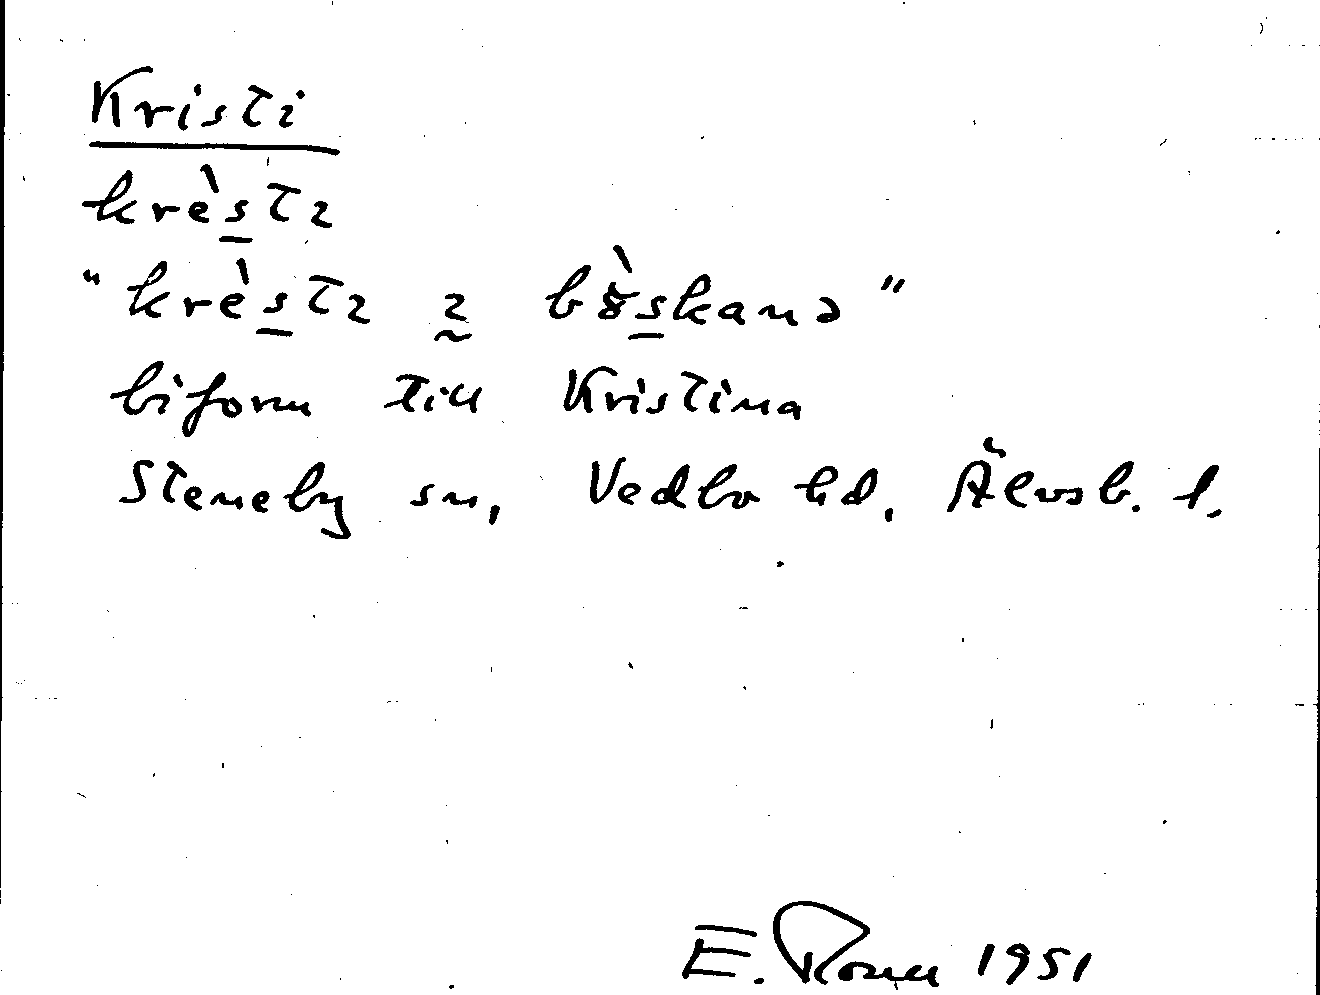 Kristi
krèstɪ
"krèstɪ ɪ bö̀skanə"
biform till Kristina
Steneby sn, Vedbo hd, Älvsb. l.
E. 1951